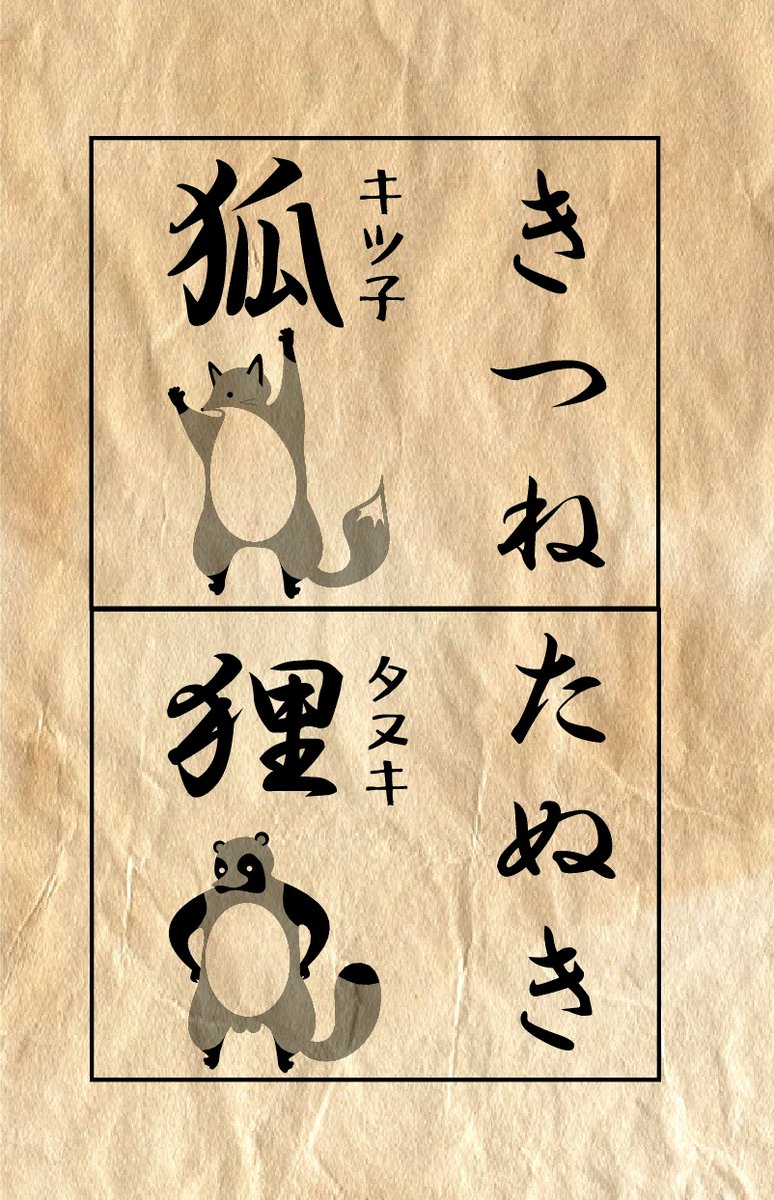 きつね
キツ子
狐
たぬき
タヌキ
狸